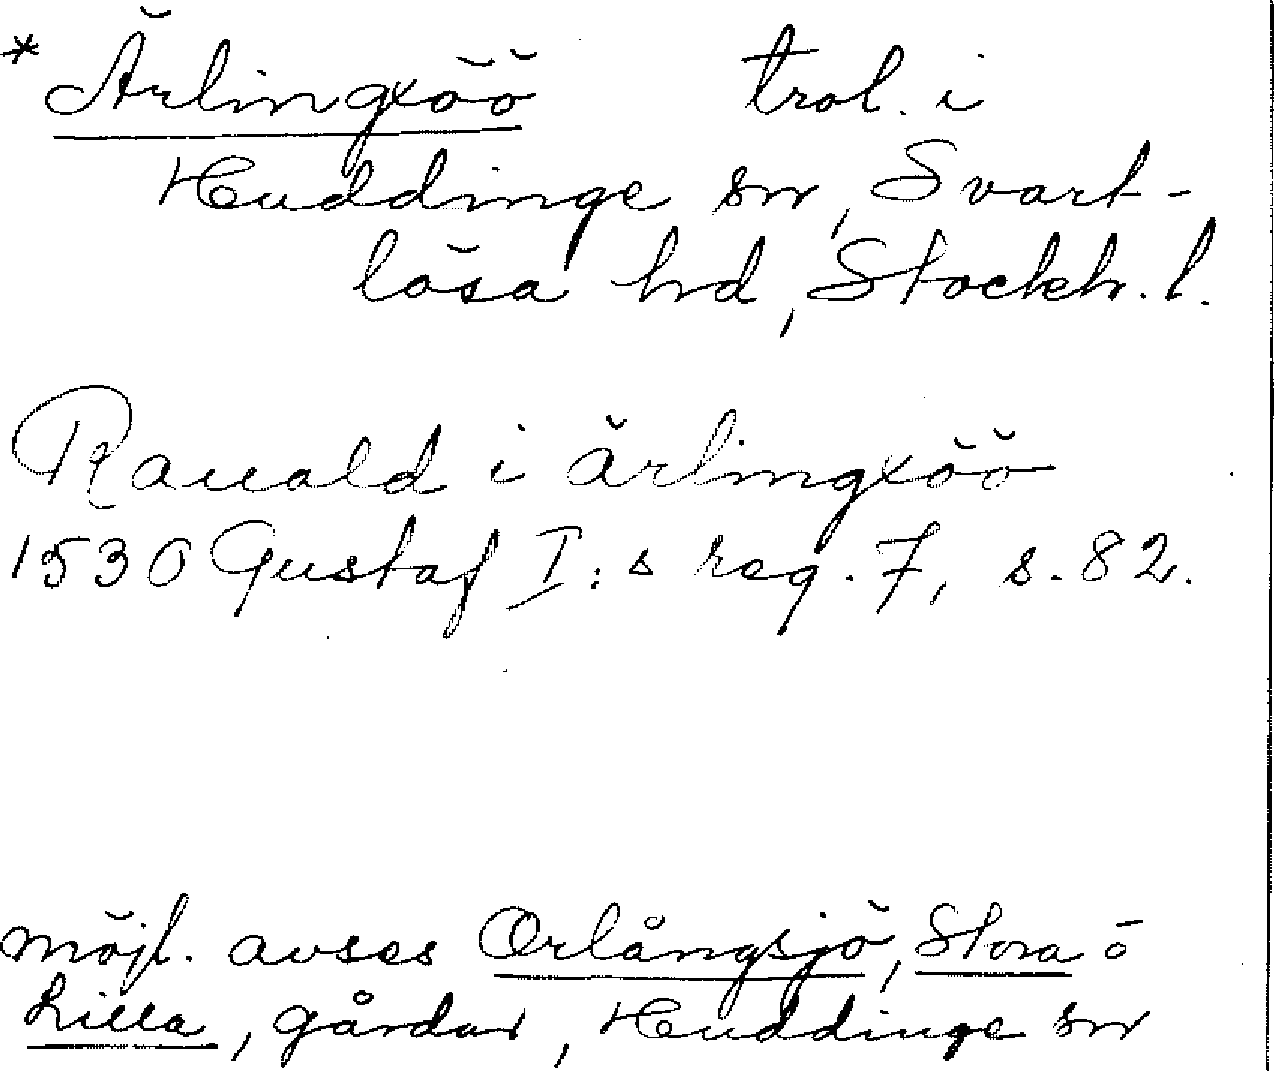 * Ärlingxöö trol. i
Huddinge sn, Svart-
lösa hd, Stockh. l.
Ranald i ärlingxöö
1530 Gustaf I:s reg. 7, s. 82.
möjl. avses Orlångsjö, Stora o
Lilla, gårdar, Huddinge sn